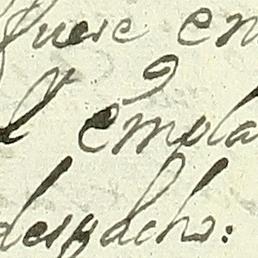 fuere en
l empla
despacho: